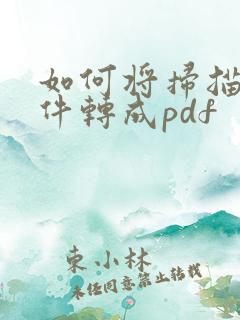 如何將掃描
件轉成pdf
東小林
未經同意禁止轉載